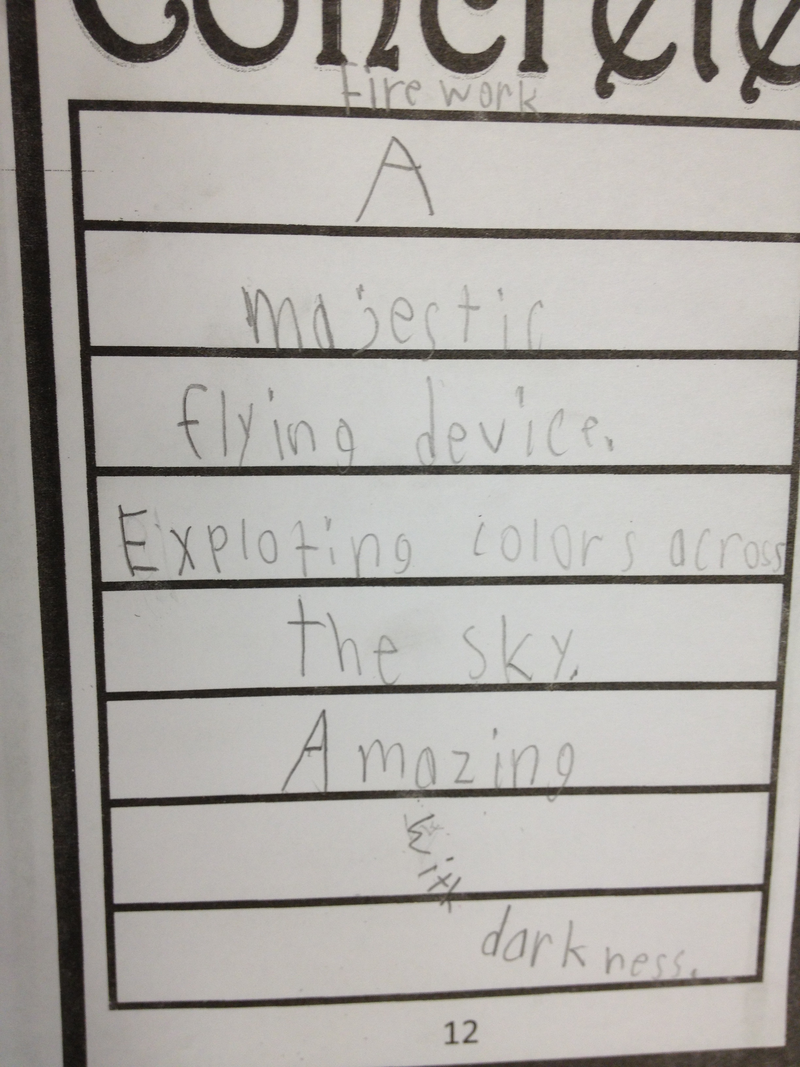 Concrete
firework
A
majestic
flying device.
Exploting colors across
the sky.
Amazing
darkness.
12